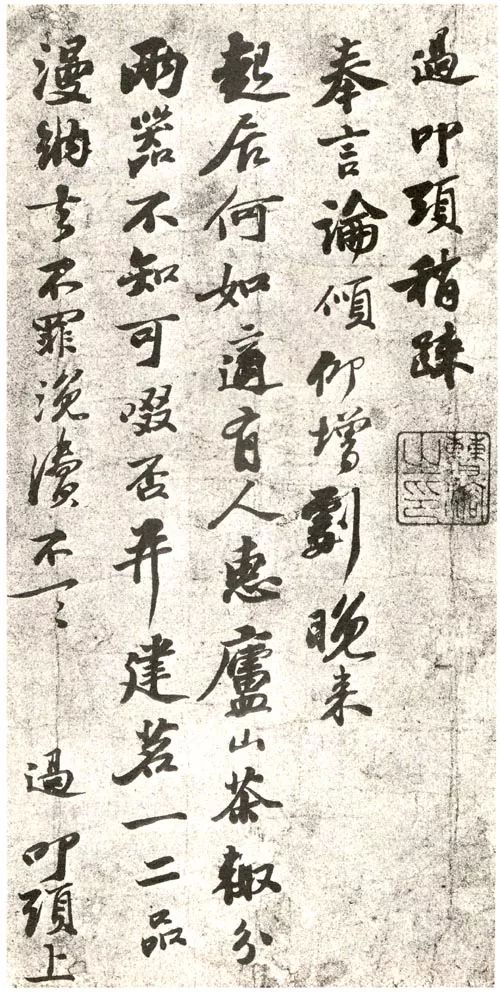 過叩頭稍疎
奉言論傾仰增劇晚来
起居何如適有人惠廬山茶輙分
兩器不知可啜否并建茗一二品
漫納去不罪浼瀆不一一 過叩頭上